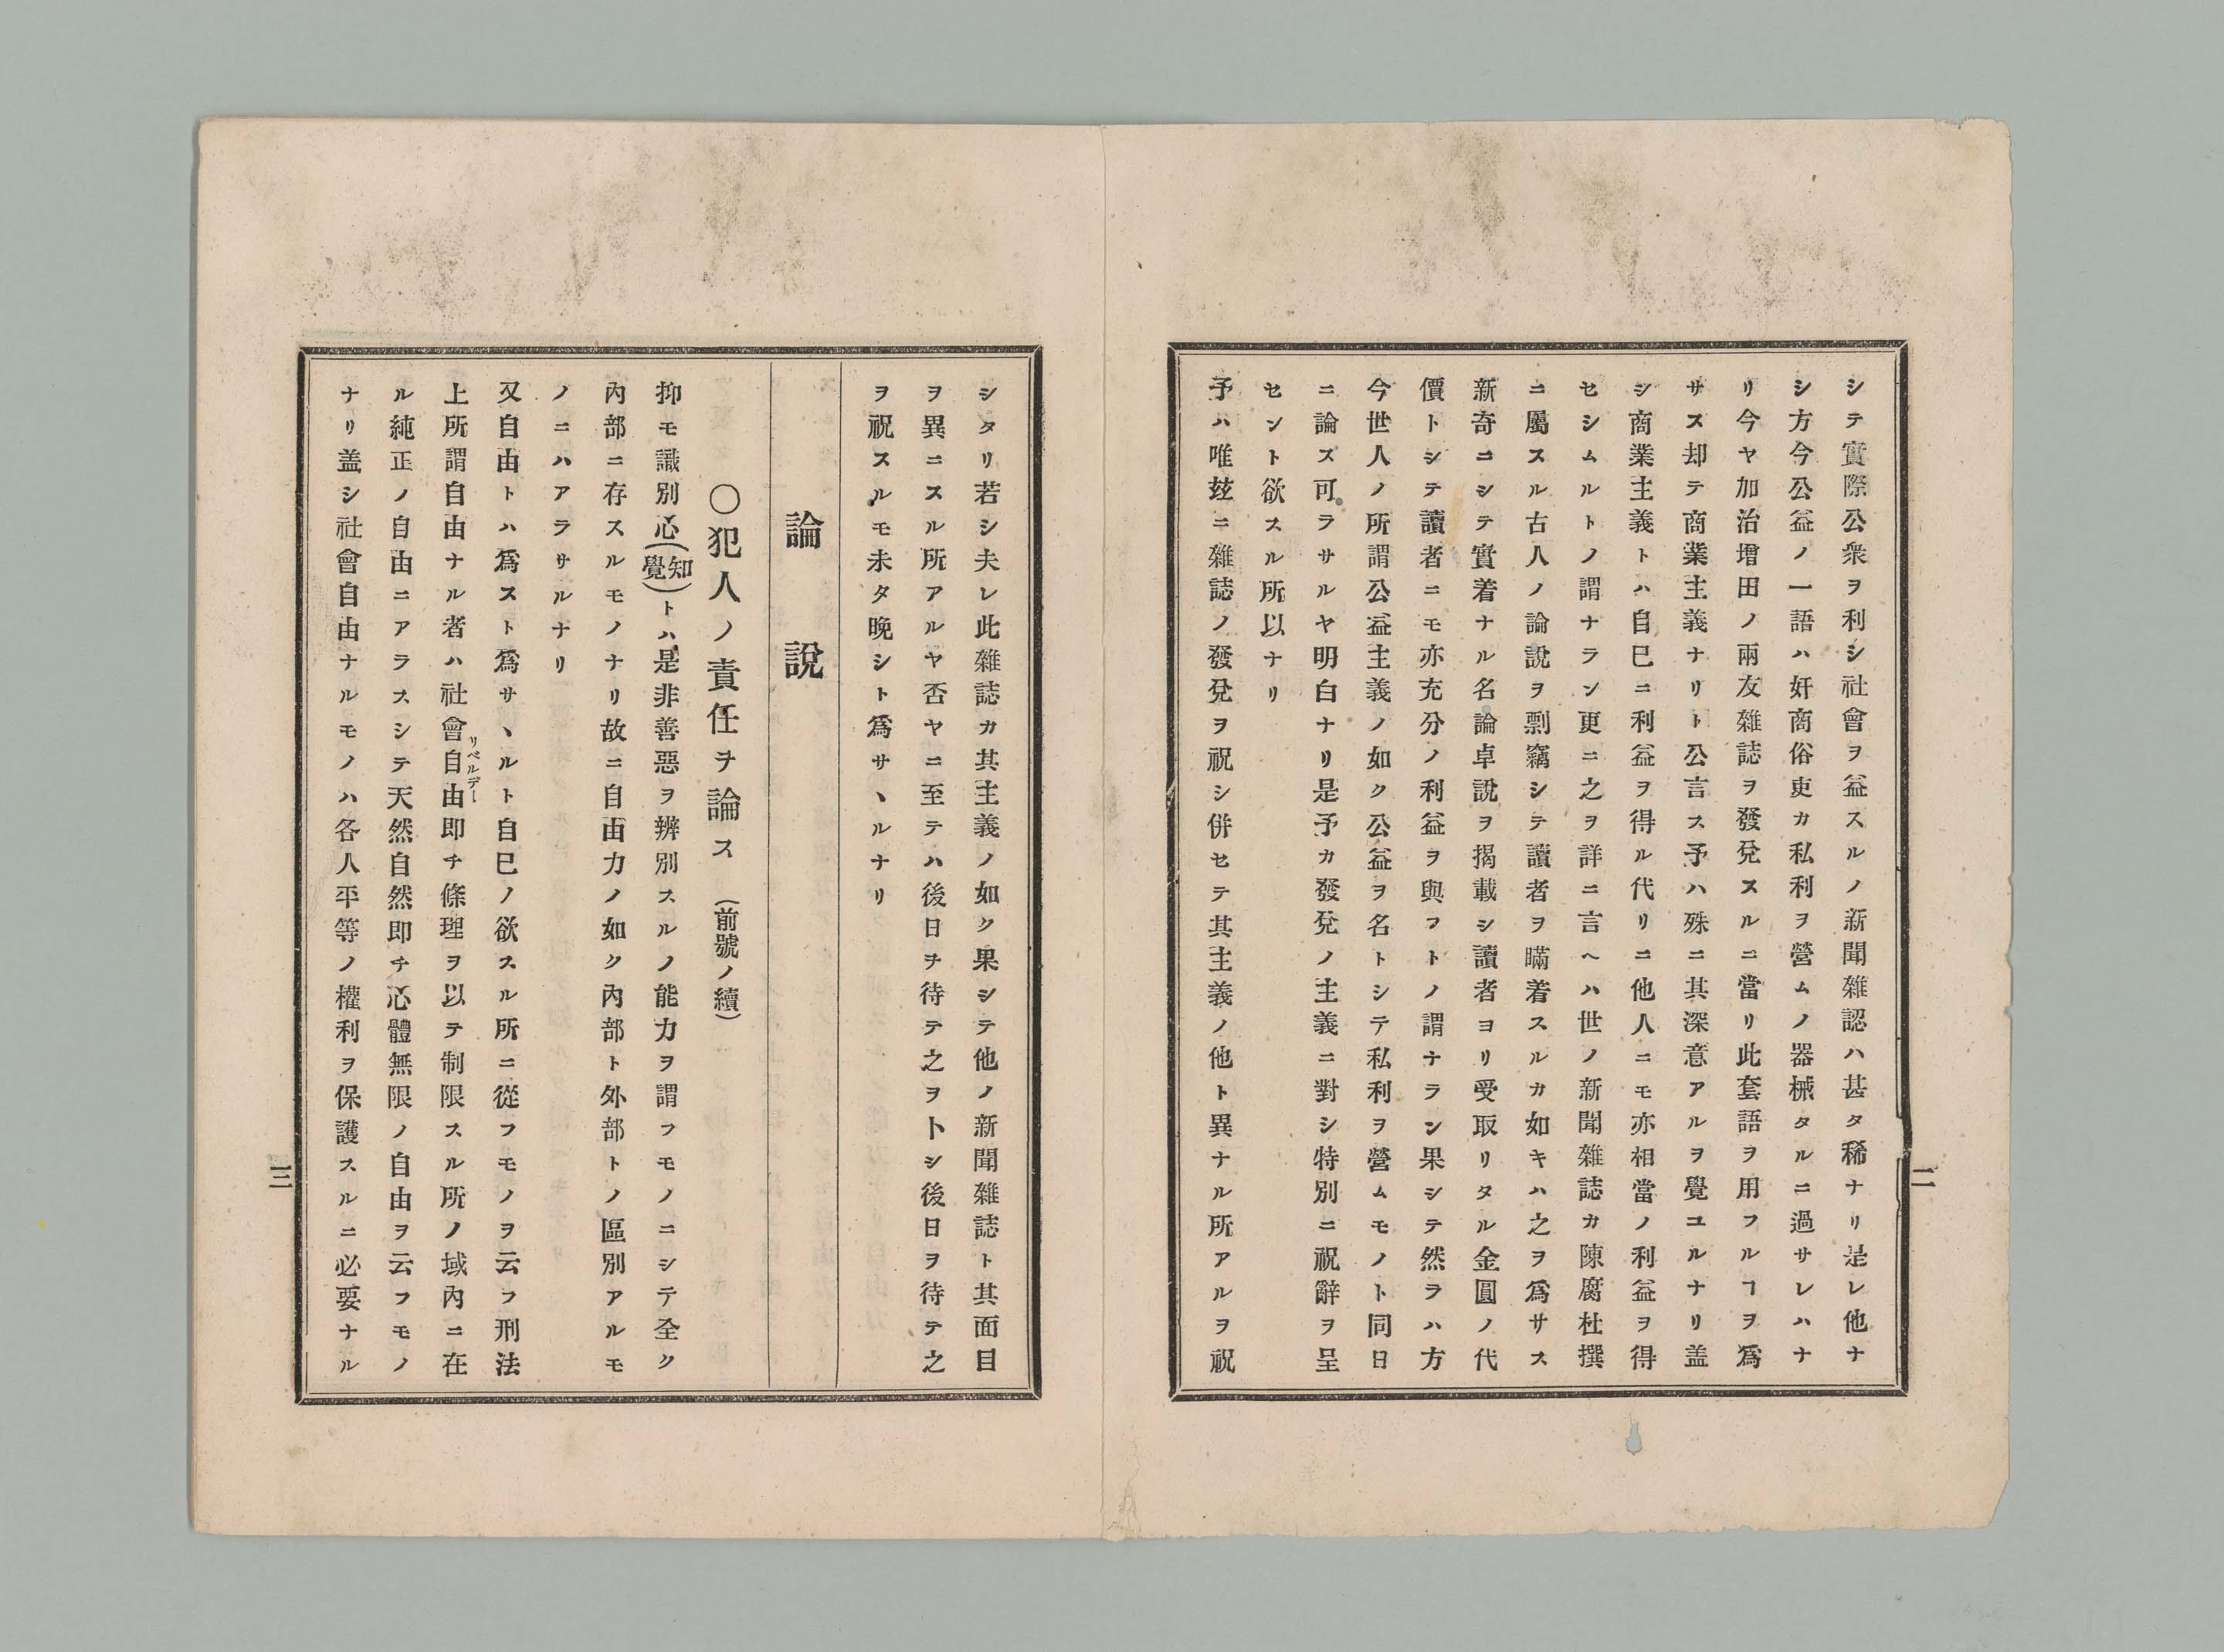 シテ實際公衆ヲ利シ社會ヲ益スルノ新聞雜認ハ甚タ稀ナリ是レ他ナ
シ方今公益ノ一語ハ奸商俗吏カ私利ヲ營ムノ器械タルニ過サレハナ
リ今ヤ加治增田ノ兩友雜誌ヲ發兌スルニ當リ此套語ヲ用フルヿヲ爲
サス却テ商業主義ナリト公言ス予ハ殊ニ其深意アルヲ覺ユルナリ盖
シ商業主義トハ自巳ニ利益ヲ得ル代リニ他人ニモ亦相當ノ利益ヲ得
セシムルトノ謂ナラン更ニ之ヲ詳ニ言ヘハ世ノ新聞雜誌カ陳腐杜撰
ニ屬スル古人ノ論說ヲ剽竊シテ讀者ヲ瞞着スルカ如キハ之ヲ爲サス
新奇ニシテ實着ナル名論卓說ヲ揭載シ讀者ヨリ受取リタル金圓ノ代
價トシテ讀者ニモ亦充分ノ利益ヲ與フトノ謂ナラン果シテ然ラハ方
今世人ノ所謂公益主義ノ如ク公益ヲ名トシテ私利ヲ營ムモノト同日
ニ論ズ可ラサルヤ明白ナリ是予カ發兌ノ主義ニ對シ特別ニ祝辭ヲ呈
セント欲スル所以ナリ
予ハ唯玆ニ雜誌ノ發兌ヲ祝シ併セテ其主義ノ他ト異ナル所アルヲ祝
二
シタリ若シ夫レ此雜誌カ其主義ノ如ク果シテ他ノ新聞雜誌ト其面目
ヲ異ニスル所アルヤ否ヤニ至テハ後日ヲ待テ之ヲトシ後日ヲ待テ之
ヲ祝スルモ未タ晩シト爲サヽルナリ
論說
○犯人ノ責任ヲ論ス (前號ノ續)
抑モ識別心(知覺)トハ是非善惡ヲ辨別スルノ能力ヲ謂フモノニシテ全ク
內部ニ存スルモノナリ故ニ自由力ノ如ク內部ト外部トノ區別アルモ
ノニハアラサルナリ
又自由トハ爲スト爲サヽルト自巳ノ欲スル所ニ從フモノヲ云フ刑法
上所謂自由ナル者ハ社會自由リベルデー即チ條理ヲ以テ制限スル所ノ域內ニ在
ル純正ノ自由ニアラスシテ天然自然即チ心體無限ノ自由ヲ云フモノ
ナリ盖シ社會自由ナルモノハ各人平等ノ權利ヲ保護スルニ必要ナル
三